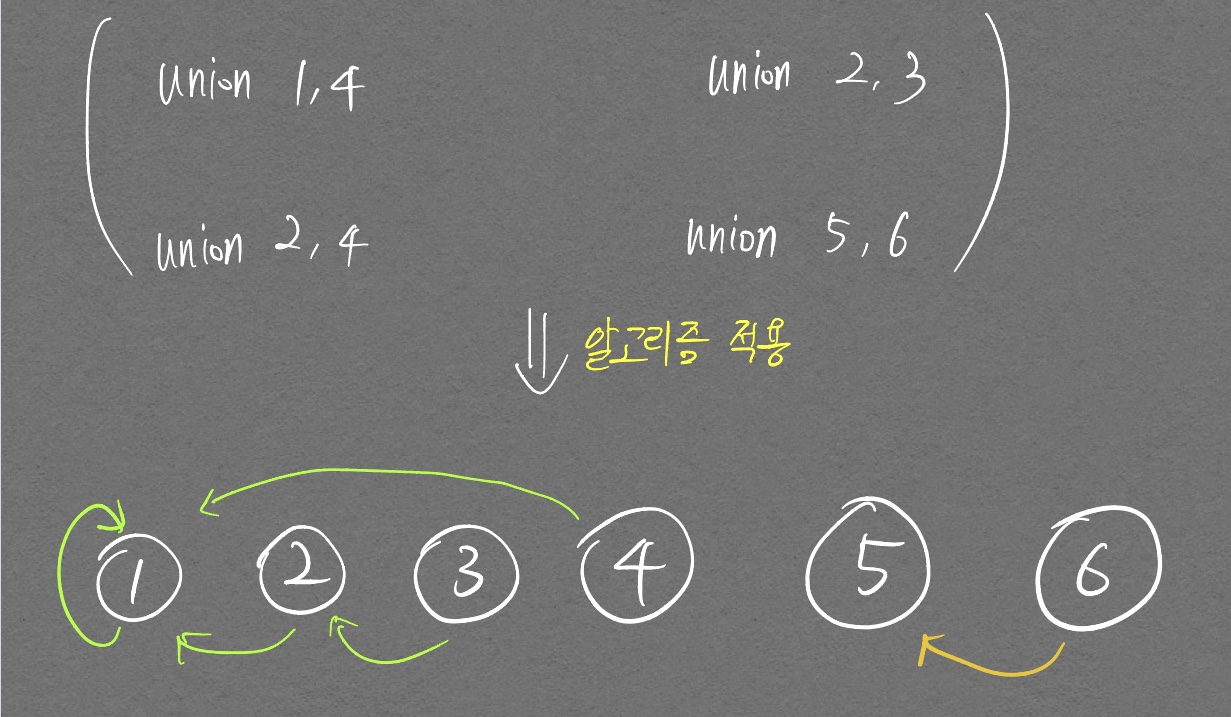 union 1,4 union 2,3
union 2,4 union 5,6
알고리즘 적용
1 2 3 4 5 6